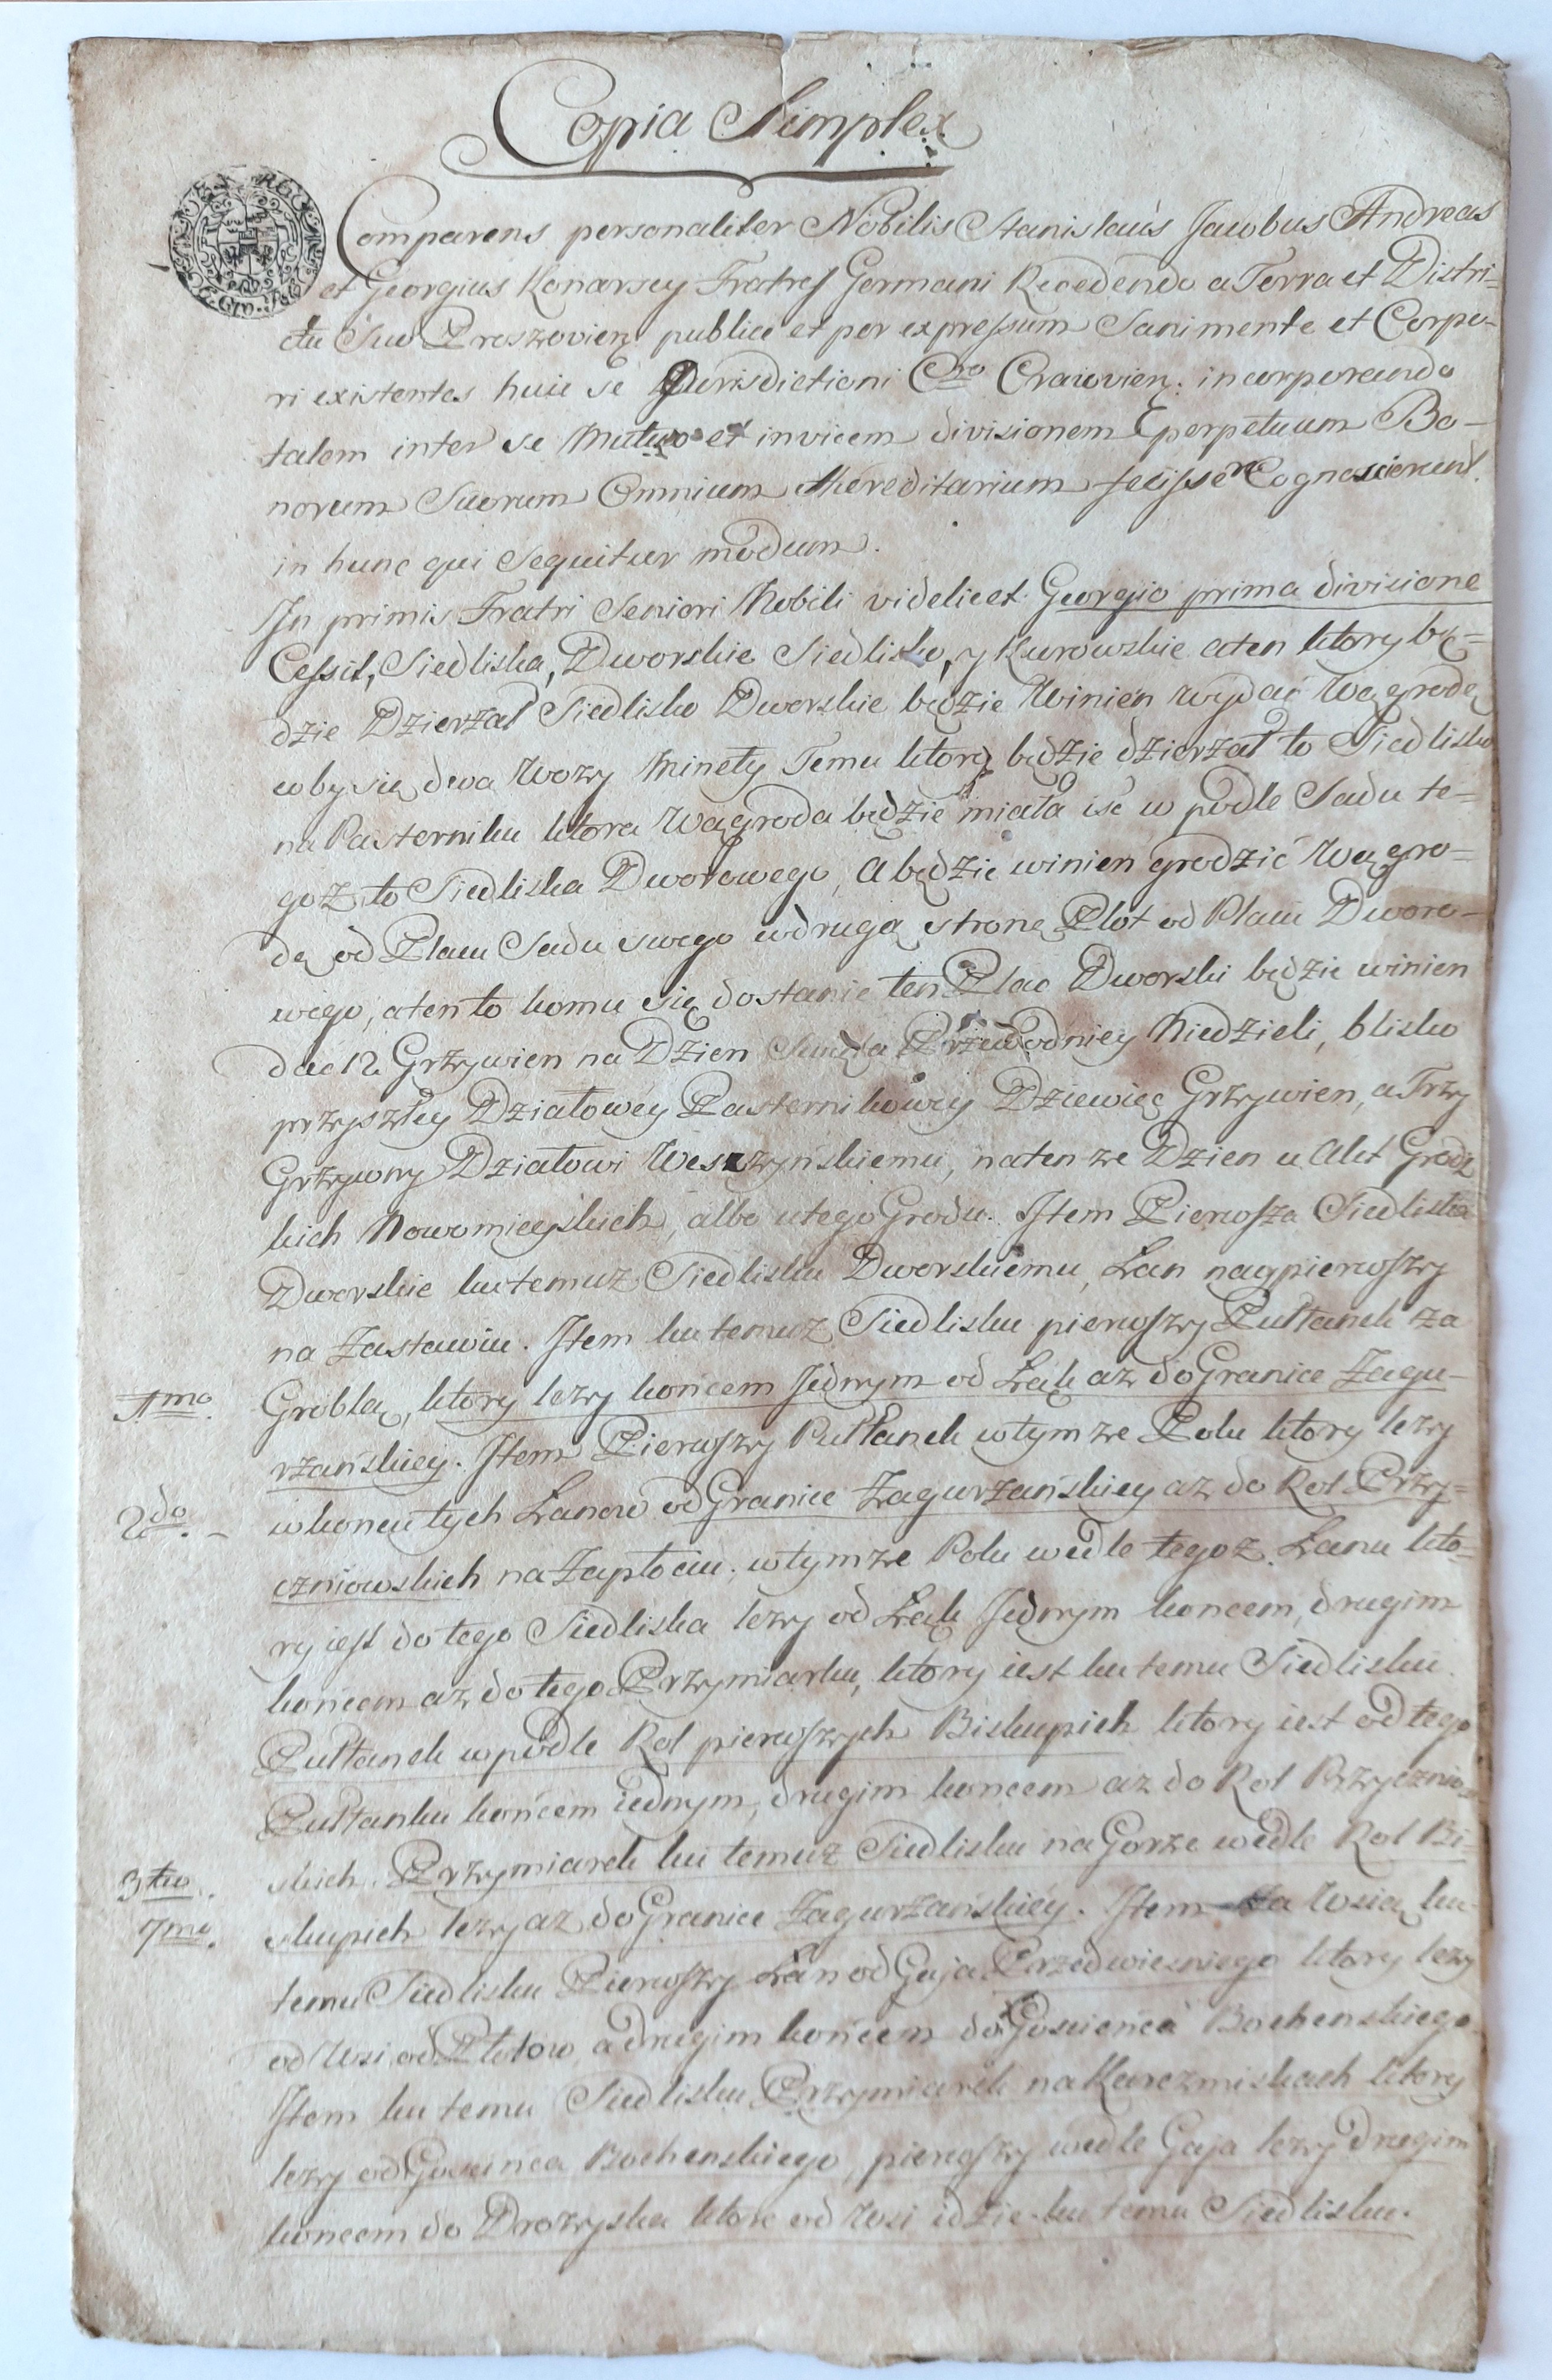 Copia Simplex
Comparens personaliter Nobilis Stanislaus Jacobus Andreas
et Georgius Konarscy Fratres Germani Recedendo a Terra et Distri=
ctu Suo Proszovien. publice et per expressum Sani mente et Corpo-
ri existentes huic se Jurisdictioni Cno Cracovien. incorporando
talem inter se mutuo et invicem divisionem perpetuum Bo-
norum Suorum Omnium Hereditarium fecisse Cognoscierunt
in hunc qui Sequitur modum.
In primis Fratri Seniori Nobili videlicet Georgio prima divisione
Cessit, Siedliska, Dworskie Siedlisko, y Kurowskie aten ktory bę=
dzie Dzierzał Siedlisko Dworskie będzie Winien wydać Wągrodę
coby się dwa Wozy Minęły Temu ktorÿ będzie dzierzał to Siedlisko
na Pasterniku ktora Wągroda będzie miała iść w podle Sadu te=
goż to Siedliska Dworowego, A będzie winien grodzić Wągro=
dę od Placu Sadu swego w drugą stronę Płot od Placu Dworo-
wego, a ten to komu się dostanie ten Plac Dworski będzie winien
dac 12 Grzywien na Dzien Przewodniey Niedzieli, blisko
przyszłey Działowey Pasternikowey Dziewięć Grzywien, a Trzy
Grzywny Działowi Weszzyńskiemu, naten ze Dzien u Akt Grodz
kich Nowomieyskich, albo u tego Grodu. Item Pierwsza Siedliska
Dworskie ku temuz Siedlisku Dworskiemu, Łan naypierwszy
na Zastawiu. Item ku temuz Siedlisku pierwszy Pułłanek za
1mo Groblą, ktory lezy końcem Jednym od Łąk az do Granice Zagu-
rzańskiey. Item Pierwszy Pułłanek w tym ze Polu ktory lezy
2do. - w koncu tych Łanow od Granice Zagurzańskiey az do Rol Przy=
czniowskich na Zapłociu. w tym ze Polu wedle tegoz Łanu kto=
ry iest do tego Siedliska lezy od Łąk Jednym koncem, drugim
końcem az do tego Przymiarku, ktory iest ku temu Siedlisku.
Pułłanek w podle Rol pierwszych Biskupich ktory iest od tego
Pułłanku końcem iednym, drugim koncem az do Rol Przycznio=
3tio. skich. Przymiarek ku temuz Siedlisku na Gorze wedle Rol Bi=
7mo. skupich lezy az do Granice Zagurzańskiey. Item Za Wsią ku
temu Siedlisku Pierwszy Łan od Gaja Przedwiecznego ktory lezy
od Wsi od Płotow, a drugim końcem do Goscienca Bochenskiego.
Item ku temu Siedlisku Przymiarek na Karczmiskach ktory
lezy od Goscińca Bochenskiego, pierwszy wedle Gaja lezy drugim
koncem do Drozyska ktore od Wsi idzie ku temu Siedlisku.